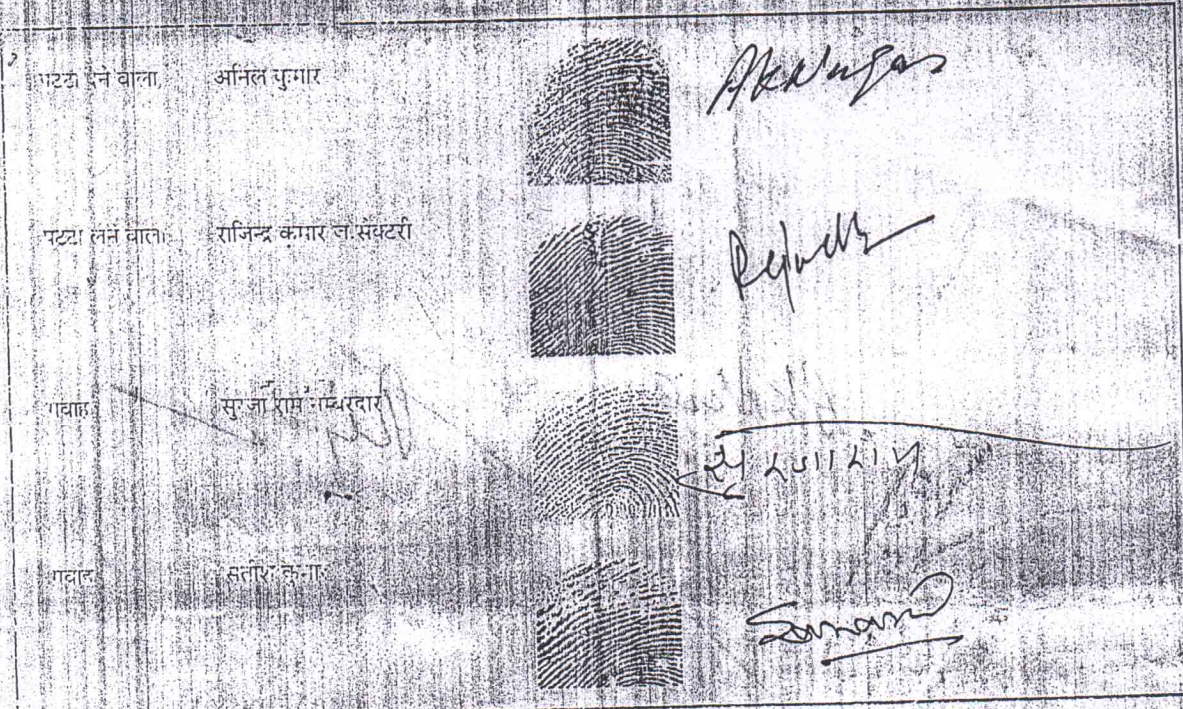 पट्टा देने वाला अनिल कुमार
पट्टा लेने वाला राजिन्द्र कुमार ज.सैक्टरी
गवाह सुरजा राम नम्बरदार
सुरजाराम
गवाह सतीश कुमार